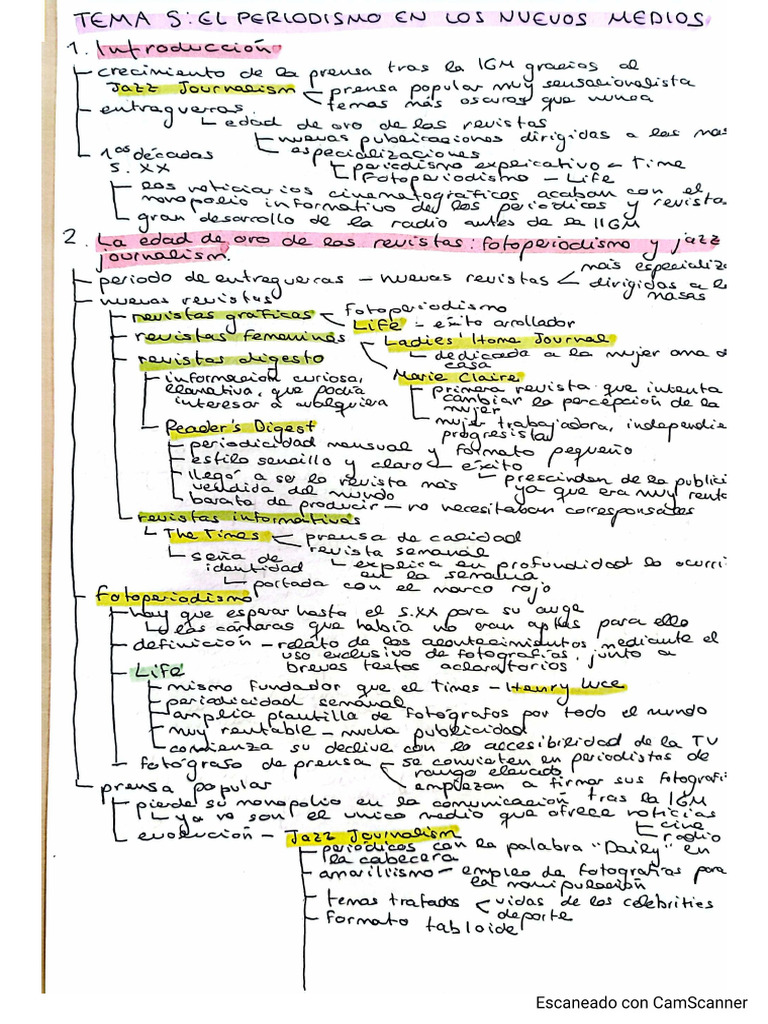 TEMA 5: EL PERIODISMO EN LOS NUEVOS MEDIOS
1. Introducción
crecimiento de la prensa tras la IGM gracias al
Jazz Journalism prensa popular muy sensacionalista
temas más oscuros que nunca
entreguerras
edad de oro de las revistas
nuevas publicaciones dirigidas a las mas
especializaciones
1as décadas periodismo explicativo - Time
S. XX Fotoperiodismo - Life
los noticiarios cinematográficos acaban con el
monopolio informativo de los periodicos y revista
gran desarrollo de la radio antes de la IIGM
2. La edad de oro de las revistas: fotoperiodismo y jazz
journalism.
periodo de entreguerras - nuevas revistas más especializ
dirigidas a la
masas
nuevas revistas
revistas gráficas fotoperiodismo
Life - éxito arrollador
revistas femeninas Ladies' Home Journal
dedicada a la mujer ama d
casa
revistas digesto
Marie Claire
información curiosa,
llamativa, que podía
interesar a cualquiera
primera revista que intenta
cambiar la percepción de la
mujer
mujer trabajadora, independie
progresista
Reader's Digest
periodicidad mensual y formato pequeño
estilo sencillo y claro - éxito
llegó a se lo revista más
vendida del mundo
prescinden de la publici
ya que era muy rent
barata de producir - no necesitaban corresponsales
revistas informativas
The Times prensa de calidad
revista semanal
seña de
identidad
explica en profundidad lo ocurri
en la semana
portada con el marco rojo
Fotoperiodismo
hay que esperar hasta el s.XX para su auge
las cámaras que había no eran aptas para ello
definición - relato de los acontecimientos mediante el
uso exclusivo de fotografías, junto a
breves textos aclaratorios
Life
mismo fundador que el Times - Henry Luce
periodicidad semanal
amplia plantilla de fotógrafos por todo el mundo
muy rentable - mucha publicidad
comienza su declive con la accesibilidad de la TV
fotógrafo de prensa se convierten en periodistas de
rango elevado
empiezan a firmar sus fotografi
prensa popular
pierde su monopolio en la comunicación tras la IGM
ya no son el unico medio que ofrece noticias
cine
radio
evolución - Jazz Journalism
periódicos con la palabra "Daily" en
la cabecera
amarillismo - empleo de fotografías para
la manipulación
temas tratados vidas de los celebrities
deporte
formato tabloide
Escaneado con CamScanner